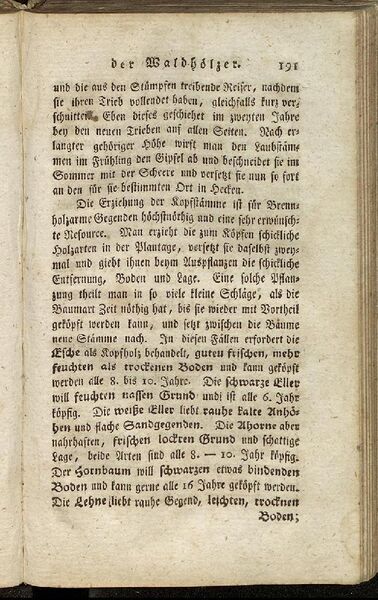 der Waldhölzer. 191
und die aus den Stämpfen treibende Reiser, nachdem
sie ihren Trieb vollendet haben, gleichfalls kurz ver-
schnitten. Eben dieses geschiehet im zweyten Jahre
bey den neuen Trieben auf allen Seiten. Nach er-
langter gehöriger Höhe wirft man den Laubstäm-
men im Frühling den Gipfel ab und beschneidet sie im
Sommer mit der Scheere und versetzt sie nun so fort
an den für sie bestimmten Ort in Hecken.
Die Erziehung der Kopfstämme ist für Brenn-
holzarme Gegenden höchstnöthig und eine sehr erwünsch-
te Resource. Man erzieht die zum Köpfen schickliche
Holzarten in der Plantage, versetzt sie daselbst zwey-
mal und giebt ihnen beym Auspflanzen die schickliche
Entfernung, Boden und Lage. Eine solche Pflan-
zung theilt man in so viele kleine Schläge, als die
Baumart Zeit nöthig hat, bis sie wieder mit Vortheil
geköpft werden kann, und setzt zwischen die Bäume
neue Stämme nach. In diesen Fällen erfordert die
Esche als Kopfholz behandelt, guten frischen, mehr
feuchten als trockenen Boden und kann geköpft
werden alle 8. bis 10. Jahre. Die schwarze Eller
will feuchten nassen Grund und ist alle 6. Jahr
köpfig. Die weiße Eller liebt rauhe kalte Anhö-
hen und flache Sandgegenden. Die Ahorne aber
nahrhaften, frischen lockren Grund und schattige
Lage, beide Arten sind alle 8. — 10. Jahr köpfig.
Der Hornbaum will schwarzen etwas bindenden
Boden und kann gerne alle 16 Jahre geköpft werden.
Die Lehne liebt rauhe Gegend, leichten, trocknen
Boden;